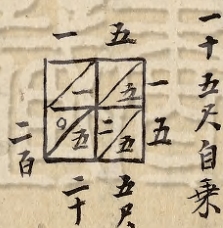 一十五尺自乗
一 五
一
五
五
〇 五 二 五
二百
二十
五尺